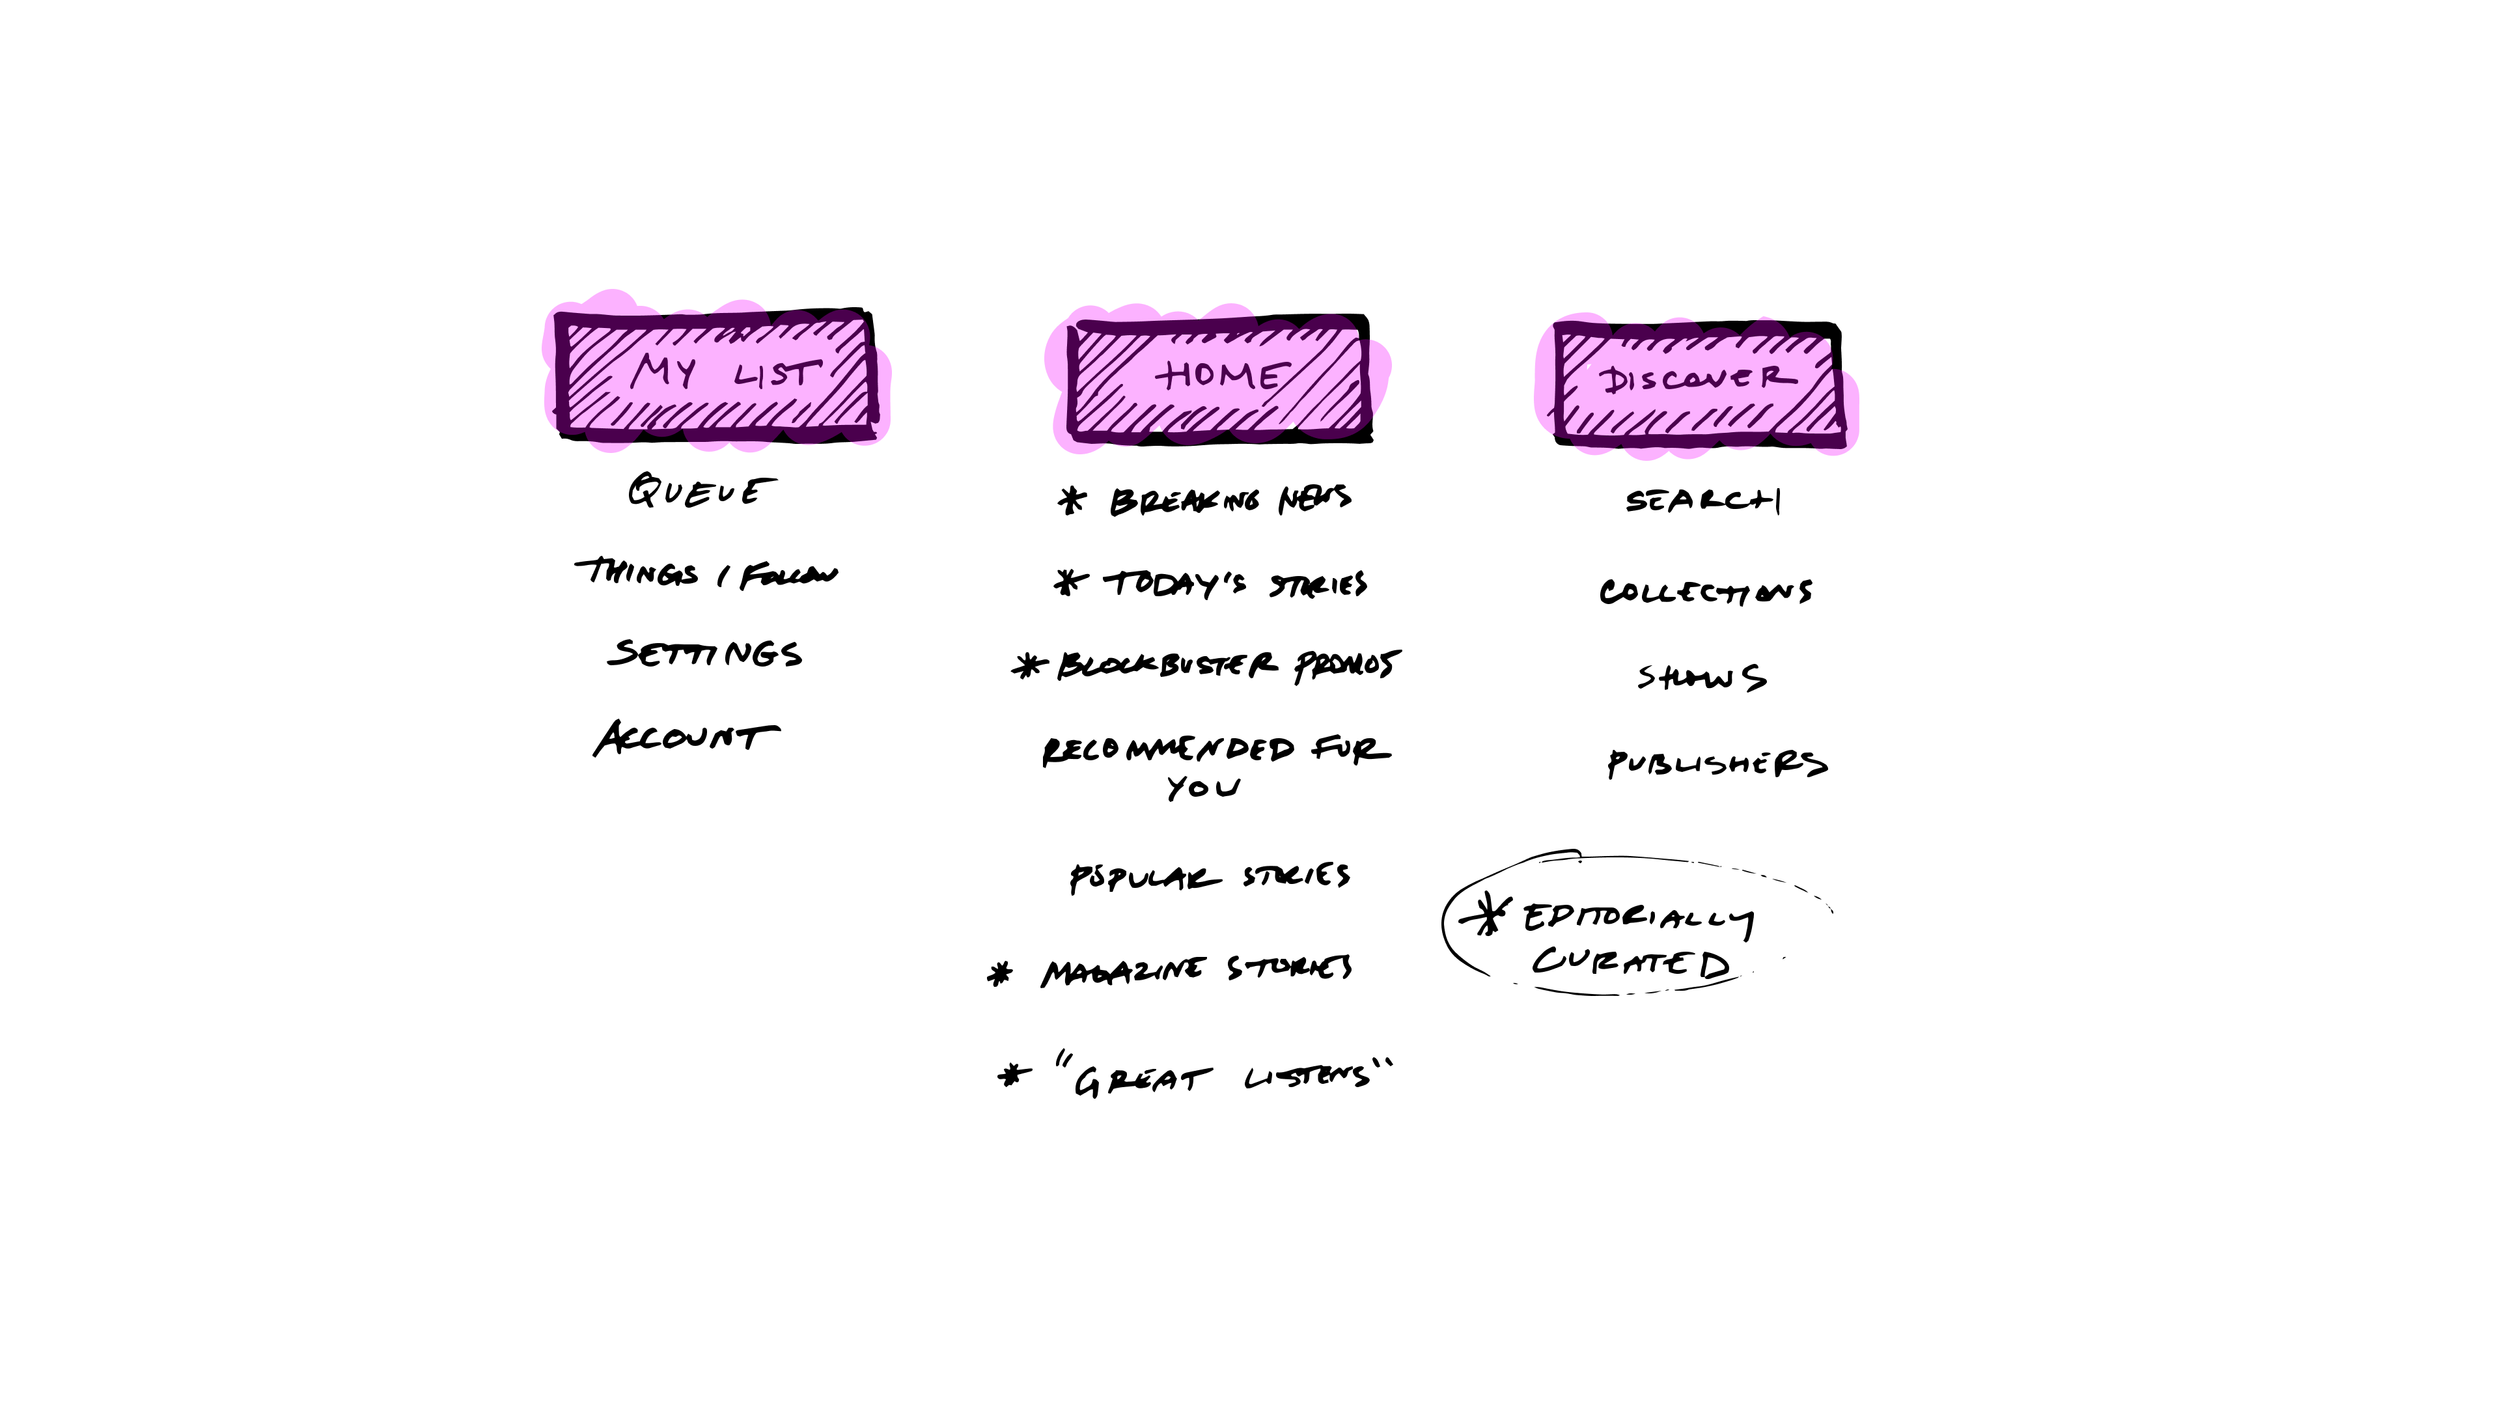 MY LIST
QUEUE
THINGS I FOLLOW
SETTINGS
ACCOUNT
HOME
* BREAKING NEWS
* TODAY'S STORIES
* BLOCKBUSTER PROMOS
RECOMMENDED FOR
YOU
POPULAR STORIES
* MAGAZINE STORIES
* "GREAT LISTENS"
DISCOVER
SEARCH
COLLECTIONS
SHOWS
PUBLISHERS
* EDITORIALLY
CURATED